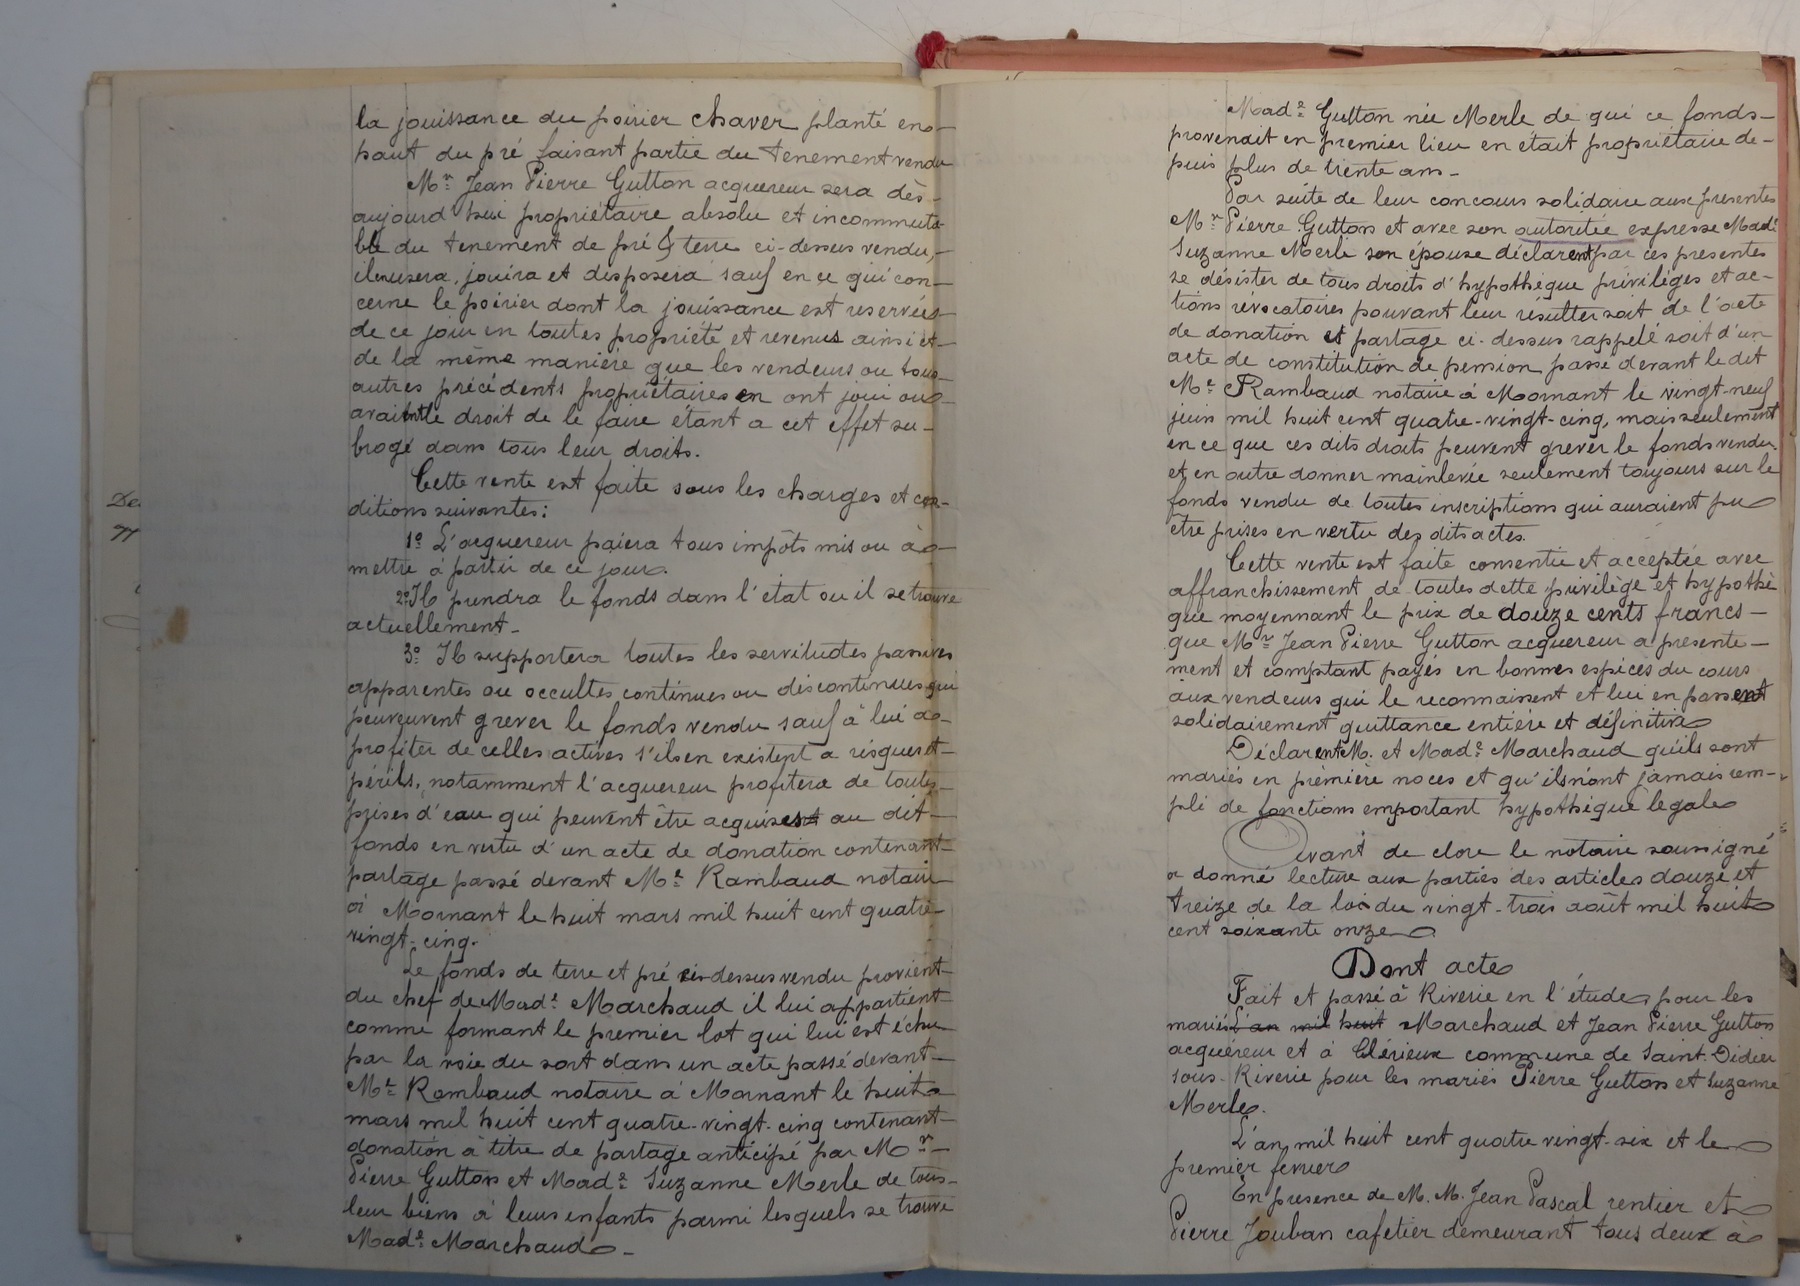 la jouissance du poirier chaver planté en
haut du pré faisant partie du tenement vendu
Mr Jean Pierre Gutton acquereur sera dès
aujourd'hui propriétaire absolu et incommuta-
ble du tenement de pré & terre ci-dessus vendu,
il en usera, jouira et disposera sauf en ce qui con-
cerne le poirier dont la jouissance est reservée
de ce jour en toutes propriété et revenus ainsi et
de la même manière que les vendeurs ou tous
autres précédents propriétaires en ont joui ou
avaient le droit de le faire étant a cet effet su-
brogé dans tous leur droits.
Cette vente est faite sous les charges et con-
ditions suivantes:
1º L'acquereur paiera tous impôts mis ou à
mettre à partir de ce jour.
2º Il prendra le fonds dans l'état ou il se trouve
actuellement.
3º Il supportera toutes les servitudes passives
apparentes ou occultes continues ou discontinues qui
peuveuvent grever le fonds vendu sauf à lui à
profiter de celles actives s'il en existent a risques et
périls, notamment l'acquereur profitera de toutes
prises d'eau qui peuvent être acquises au dit
fonds en vertu d'un acte de donation contenant
partage passé devant Me Rambaud notaire
à Mornant le huit mars mil huit cent quatre-
vingt-cinq.
Le fonds de terre et pré ci-dessus vendu provient
du chef de Made Marchaud il lui appartient
comme formant le premier lot qui lui est échu
par la voie du sort dans un acte passé devant
Me Rambaud notaire à Mornant le huit
mars mil huit cent quatre-vingt-cinq contenant
donation à titre de partage anticipé par Mr
Pierre Gutton et Made Suzanne Merle de tous
leur biens à leurs enfants parmi lesquels se trouve
Made Marchaud.
De
Made Gutton née Merle de qui ce fonds
provenait en premier lieu en était propriétaire de-
puis plus de trente ans.
Par suite de leur concours solidaire aux presentes
Mr Pierre Gutton et avec son autoritée expresse Made
Suzanne Merle son épouse déclarent par ces presentes
se désister de tous droits d'hypothèque privilèges et ac-
tions révocatoires pouvant leur résulter soit de l'acte
de donation et partage ci-dessus rappelé soit d'un
acte de constitution de pension passé devant le dit
Me Rambaud notaire à Mornant le vingt-neuf
juin mil huit cent quatre-vingt-cinq, mais seulement
en ce que ces dits droits peuvent grever le fonds vendu
et en outre donner mainlevée seulement toujours sur le
fonds vendu de toutes inscriptions qui auraient pu
etre prises en vertu des dits actes.
Cette vente est faite consentie et acceptée avec
affranchissement de toutes dette privilège et hypothè
que moyennant le prix de douze cents francs
que Mr Jean Pierre Gutton acquereur a presente-
ment et comptant payés en bonnes espices du cours
aux vendeurs qui le reconnaissent et lui en passent
solidairement quittance entière et définitive
Déclarent M. et Made Marchaud qu'ils sont
mariés en première noces et qu'ils n'ont jamais rem-
pli de fonctions emportant hypothèque légale
Avant de clore le notaire soussigné
a donné lecture aux parties des articles douze et
treize de la loi du vingt-trois août mil huit
cent soixante onze
Dont acte
Fait et passé à Riverie en l'étude, pour les
mariés L'an mil huit Marchaud et Jean Pierre Gutton
acquéreur et à Clérieux commune de Saint-Didier
sous-Riverie pour les mariés Pierre Gutton et Suzanne
Merle.
L'an mil huit cent quatre vingt-six et le
premier fevrier
En presence de M. M. Jean Pascal rentier et
Pierre Jouban cafetier demeurant tous deux à